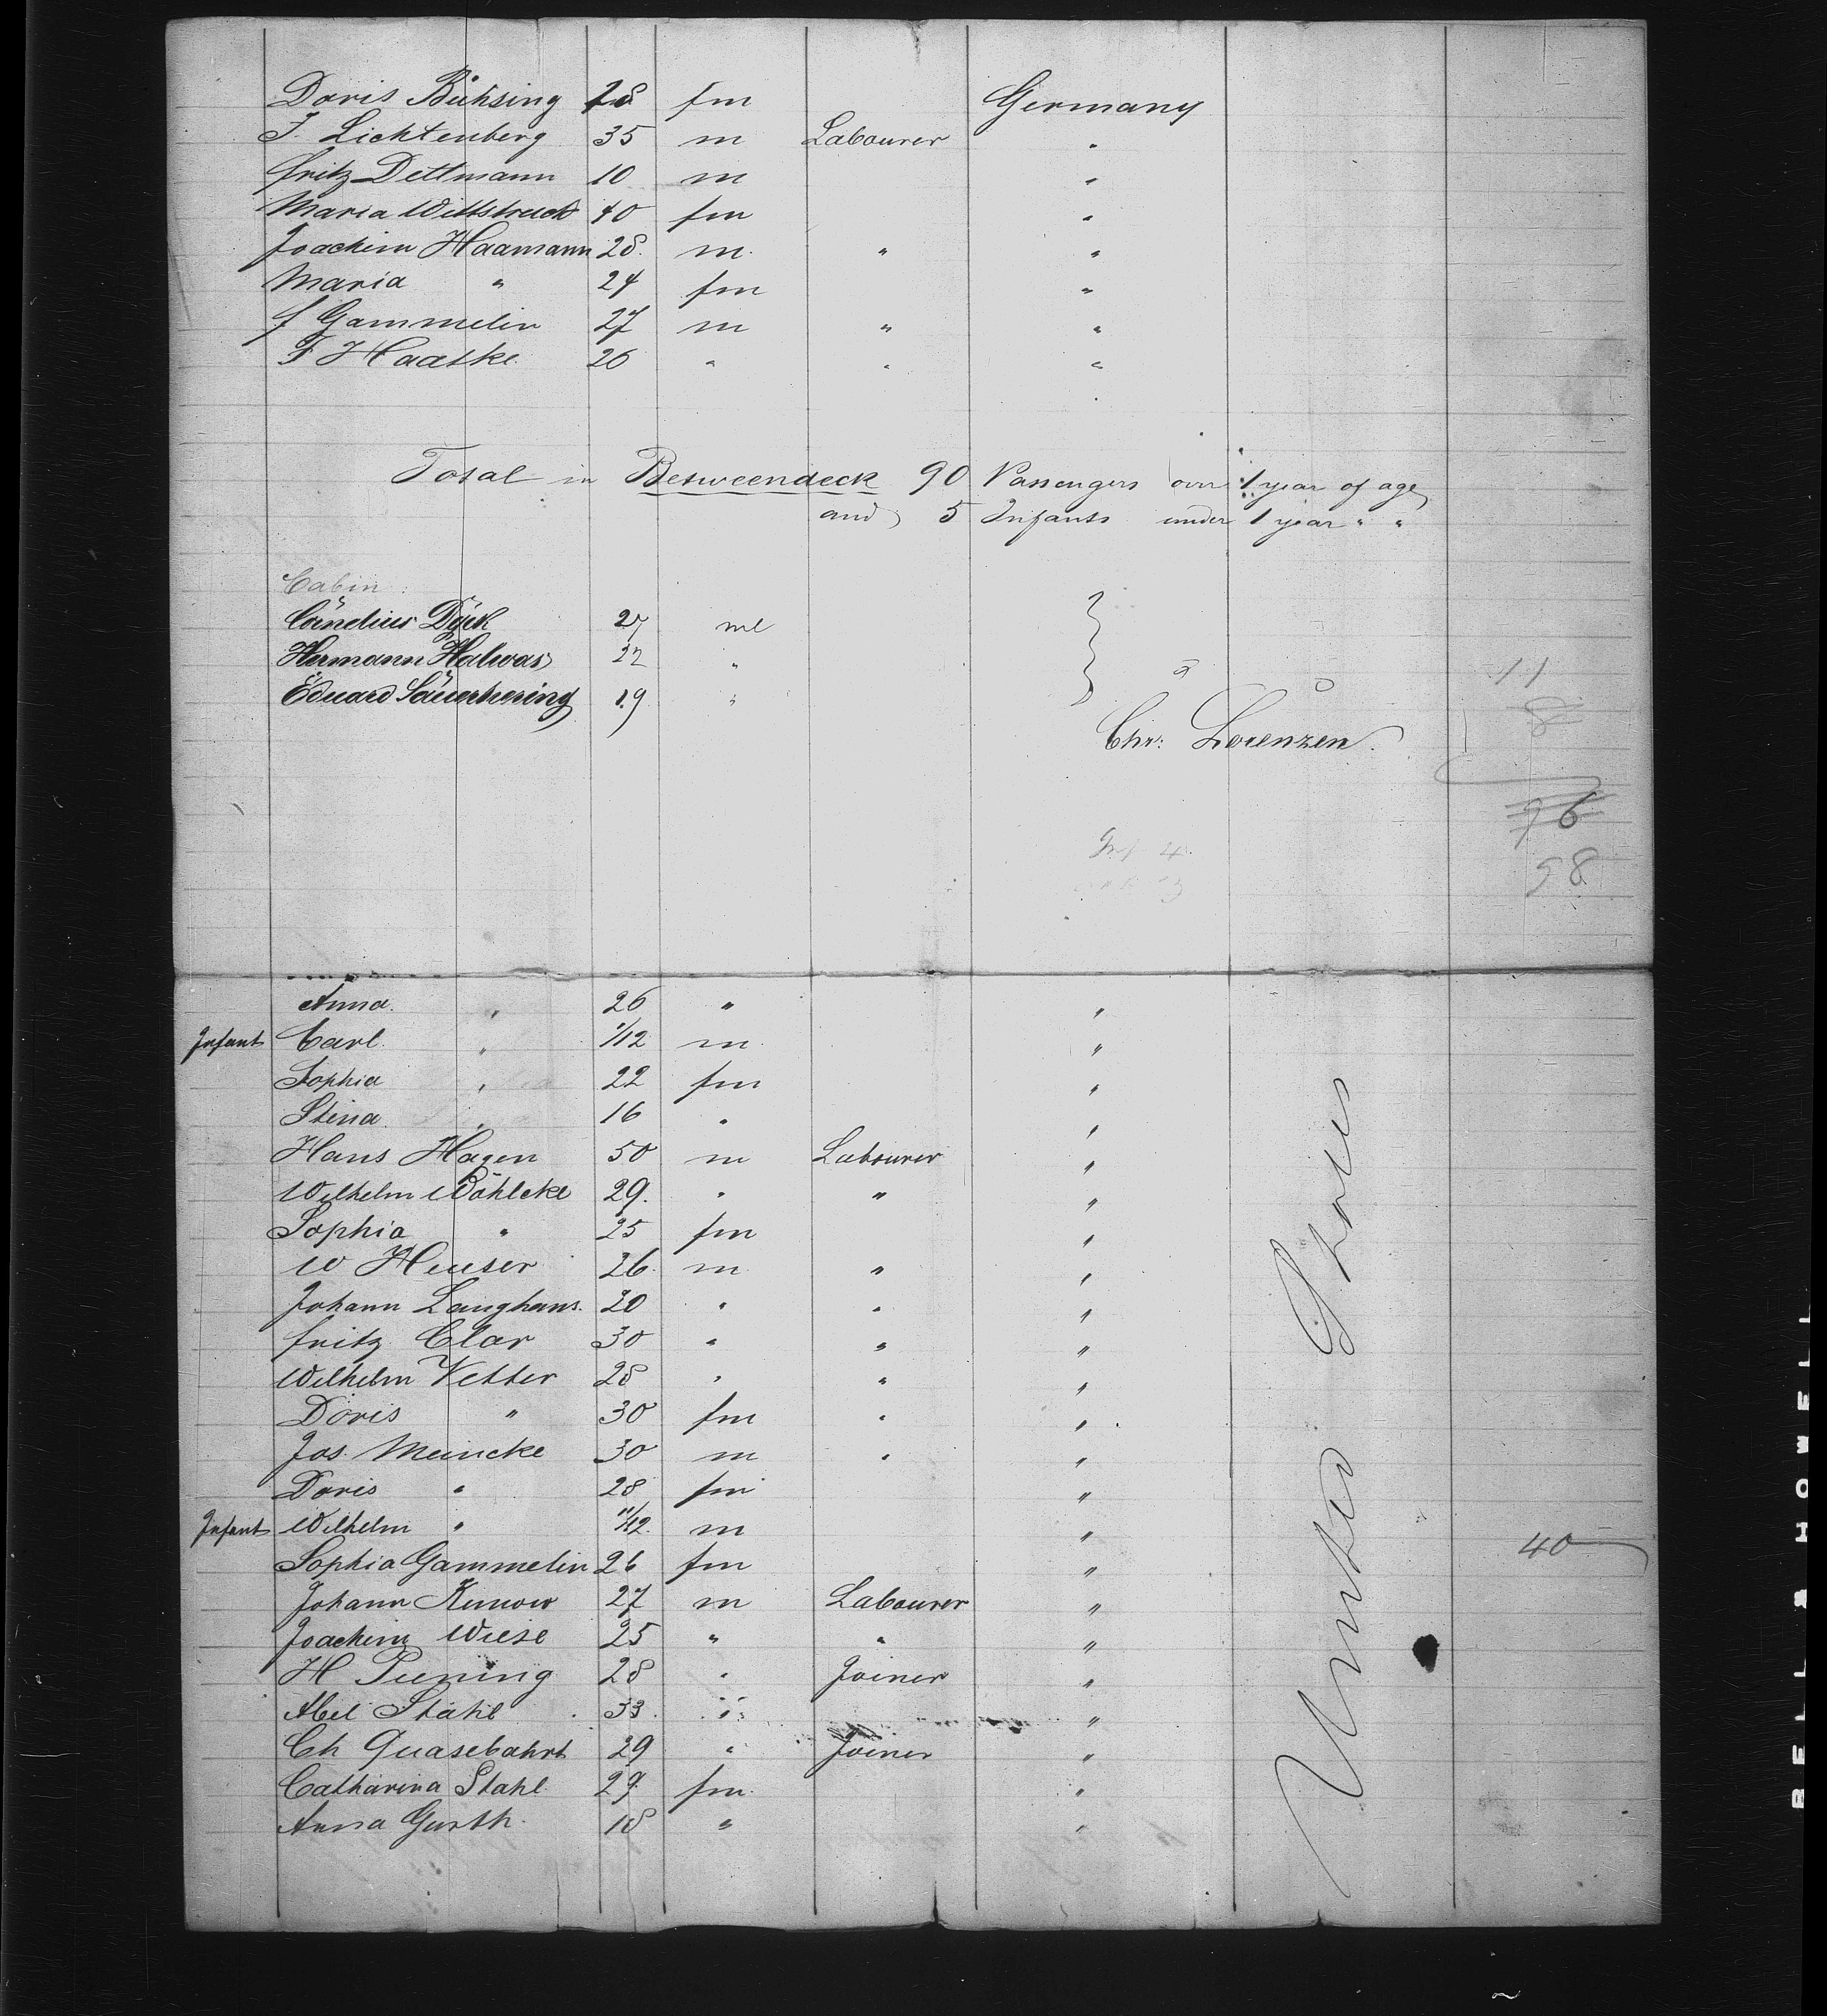 Doris Bühsing 28 fm Germany
J. Lichtenberg 35 m Labourer "
fritz Dettmann 10 m "
Maria Wittstruck 40 fm "
Joachim Haamann 28. m. " "
Maria " 24 fm "
f Gammelin 27 m " "
F Haatke. 26 " " "
Total in Betweendeck 90 Passengers over 1 year of age
and 5 Infants under 1 year " "
Cabin:
Cornelius Dyck 27 ml
Hermann Halwas 22 "
Eduard Sauerhering 19 "
11
8
Chr: Lorenzen.
96
98
Anna. " 26 " "
Infant Carl. " 1/12 m. "
Sophia " 22 fm "
Stina. " 16 " "
Hans Hagen 50 m Labourer "
Wilhelm Wöhlcke 29. " " "
Sophia " 25 fm "
W Heuser 26. m " "
Johann Langhans. 20 " " "
fritz Clar 30 " " "
Wilhelm Vetter 28 " " "
Doris " 30 fm " "
Jos. Meincke 30 m " "
Doris " 28 fm "
Infant Wilhelm " 11/12. m "
Sophia Gammelin 26 fm "
Johann Kunow 27 m Labourer "
Joachim Wiese 25 " " "
H Piening 28 " Joiner "
Abel Stahl 33. " "
Ch Quasebahrt 29 " Joiner "
Catharina Stahl 29. fm. "
Anna Gurth. 18 " "
United States
40
BELL & HOWELL